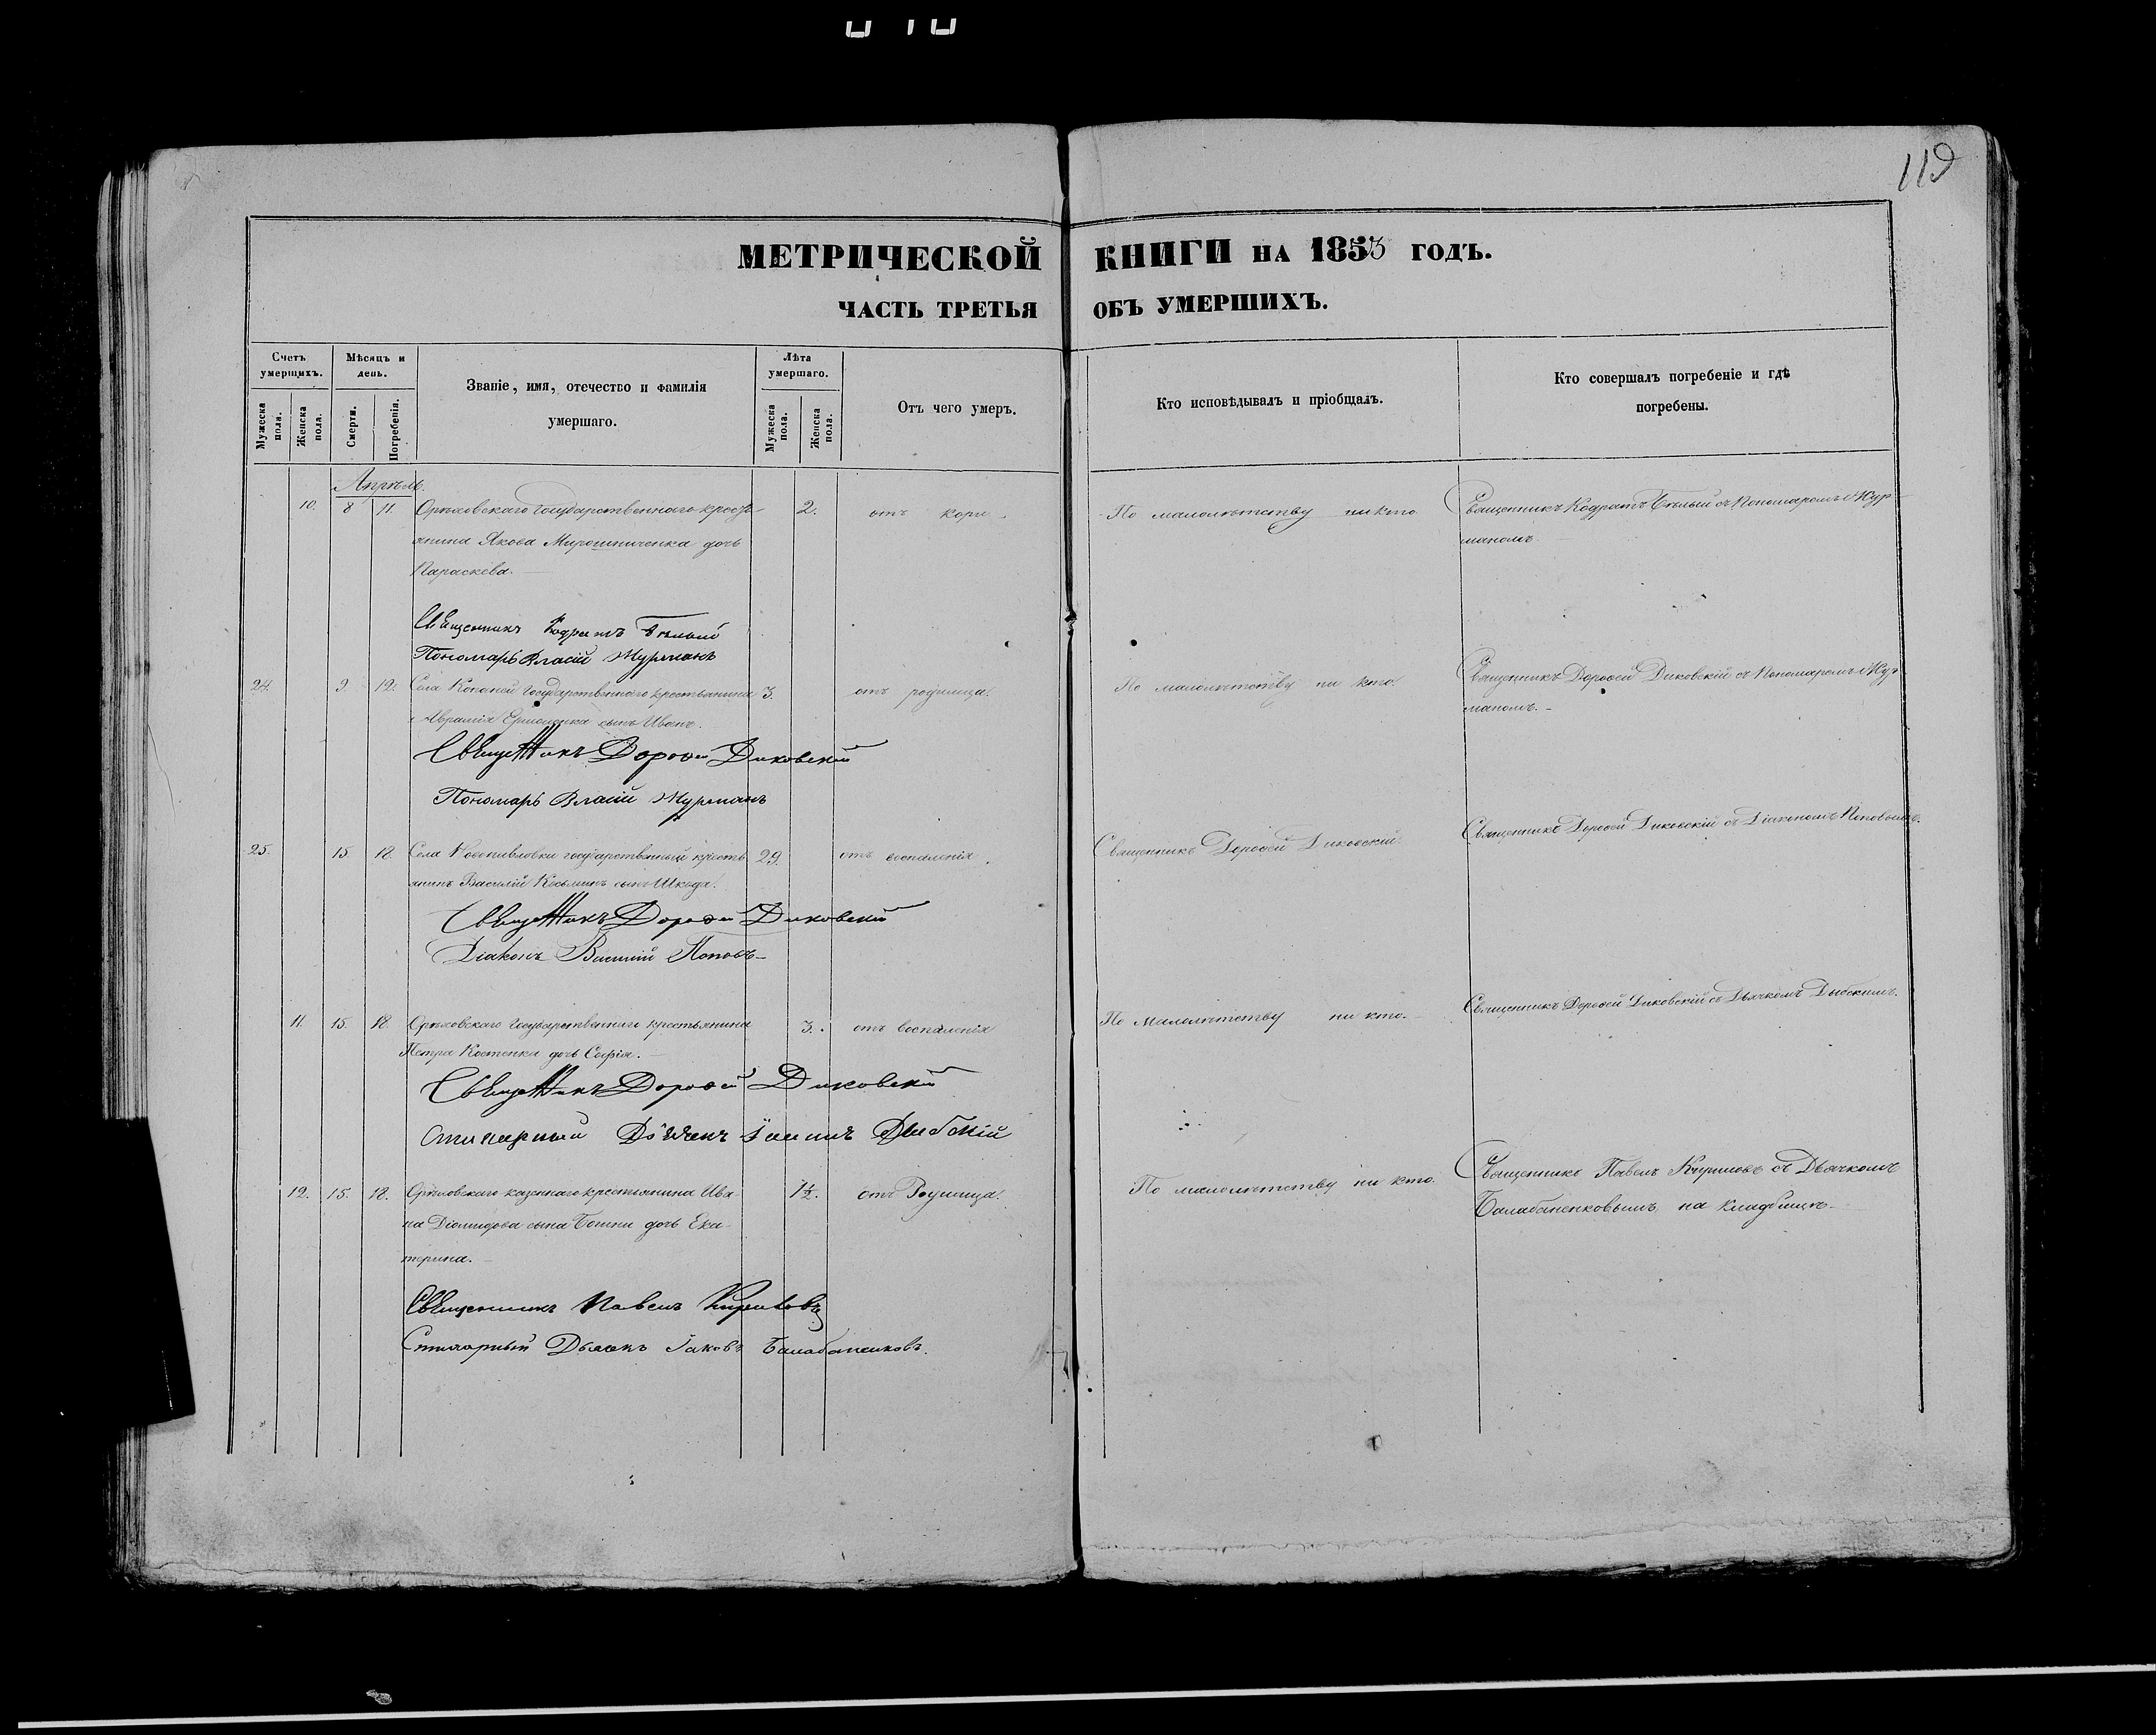 119
МЕТРИЧЕСКОЙ КНИГИ НА 1853 ГОДЪ.
ЧАСТЬ ТРЕТЬЯ ОБЪ УМЕРШИХЪ.
Счетъ умершихъ.
Мужеска пола.
Женска пола.
Мѣсяцъ и день.
Смерти.
Погребенія.
Званіе, имя, отечество и фамилія
умершаго.
Лѣта умершаго.
Мужеска пола.
Женска пола.
Отъ чего умеръ.
Кто исповѣдывалъ и пріобщалъ.
Кто совершалъ погребеніе и гдѣ
погребены.
Апрѣль.
10. 8 11. Орѣховскаго государственнаго кресть- 2. отъ кори. По малолѣтству никто. Священникъ Кодратъ Бѣлый съ Пономаремъ Жур-
янина Якова Мирошниченка дочь маномъ
Параскева.
Священникъ Кодратъ Бѣлый
Пономарь Власій Журманъ
24. 9. 12. Села Копаней государственнаго крестьянина 3. отъ родимца. По малолѣтству ни кто. Священникъ Дорофей Диковскій съ Пономаремъ Жур
Аврамія Ермоленка сынъ Иванъ. маномъ.
Священникъ Дорофей Диковскій
Пономарь Власій Журманъ
25. 15. 18. Села Новопавловки государственный кресть 29. отъ воспаленія. Священникъ Дорофей Диковскій. Священникъ Дорофей Диковскій съ Діакономъ Поповымъ.
янинъ Василій Косьминъ сынъ Шкода.
Священникъ Дорофей Диковскій
Діаконъ Василій Поповъ
11. 15. 18. Орѣховскаго государственнаго крестьянина 3. отъ воспаленія По малолѣтству ни кто. Священникъ Дорофей Диковскій съ Дьячкомъ Дыбскимъ.
Петра Костенка дочь Софія.
Священникъ Дорофей Диковскій
Стихарный Дьячекъ Дыбскій
12. 15. 18. Орѣховскаго казеннаго крестьянина Ива- 1½. отъ Родимца. По малолѣтству ни кто. Священникъ Павелъ Кириловъ съ Дьячкомъ
на Діомидова сына дочь Ека- Балабаненковымъ на кладбищѣ
терина.
Священникъ Павелъ Кириловъ
Стихарный Дьячекъ Іаковъ Балабаненковъ.